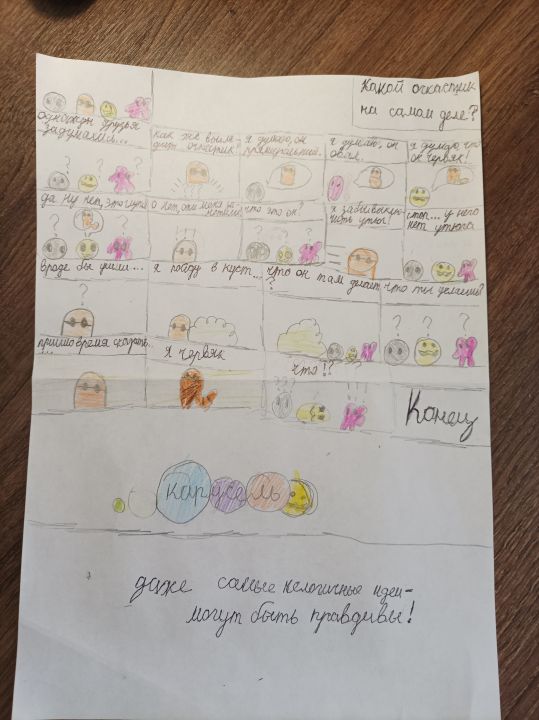 Какой очкастик
на самом деле?
однажды друзья
задумались...
как же выгля-
дит очкастик!
я думаю, он
прямоугольный.
я думаю, он
овал.
я думаю, что
он червяк!
да ну нет, это
о нет, они меня за-
метили!
что это он?
я забыл выклю-
чить утюг!
стоп... у него
нет утюга
вроде бы ушли...
я пойду в куст...
что он там делает
?
что ты делаешь?
пришло время сказать...
я червяк
что!?
Конец
карусель
даже самые нелогичные идеи-
могут быть правдивы!